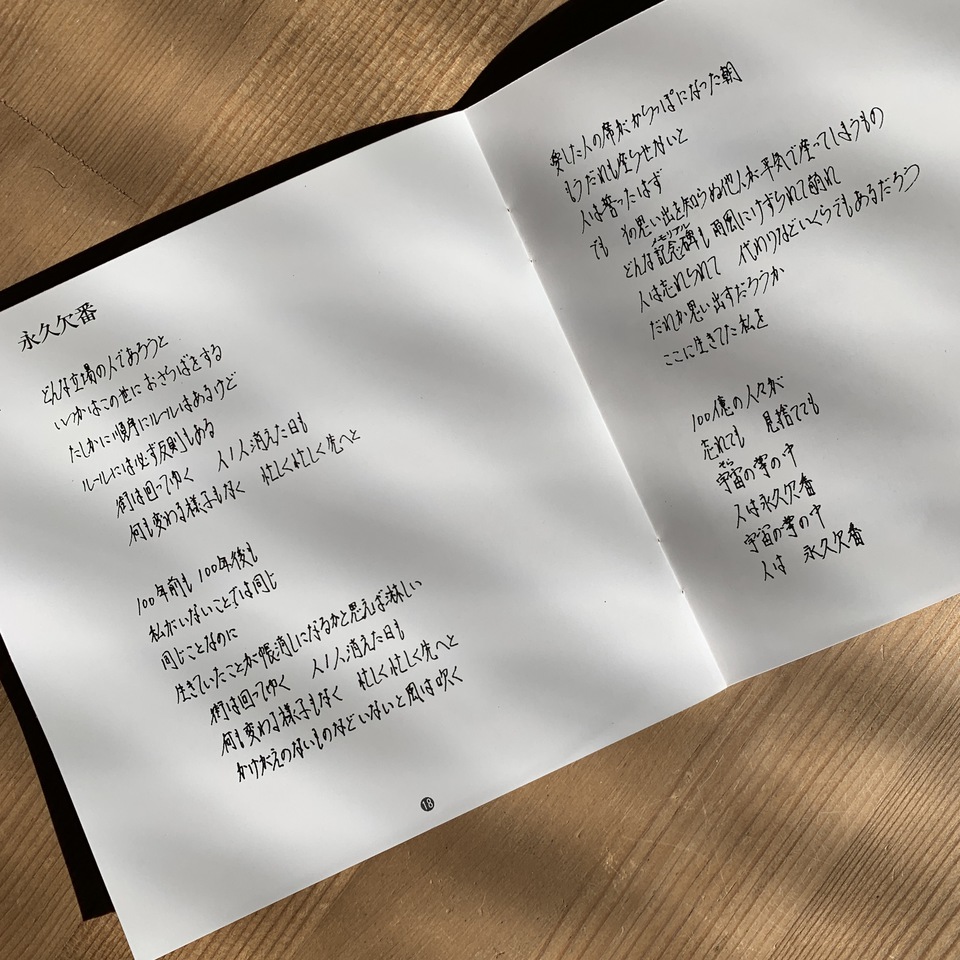 永久欠番
どんな立場の人であろうと
いつかはこの世におさらばをする
たしかに順序にルールはあるけど
ルールには必ず反則もある
街は回ってゆく　人1人消えた日も
何も変わる様子もなく　忙しく忙しく先へと
100年前も 100年後も
私がいないことでは同じ
同じことなのに
生きていたことが帳消しになるかと思えば淋しい
街は回ってゆく　人1人消えた日も
何も変わる様子もなく　忙しく忙しく先へと
かけがえのないものなどいないと風は吹く
18
愛した人の席がからっぽになった朝
もうだれも座らせないと
人は誓ったはず
でも その思い出を知らぬ他人が平気で座ってしまうもの
メモリアル
どんな記念碑も 雨風にけずられて崩れ
人は忘れられて　代わりなどいくらでもあるだろう
だれか思い出すだろうか
ここに生きてた私を
100億の人々が
忘れても　見捨てても
そら
宇宙の掌の中
人は永久欠番
宇宙の掌の中
人は　永久欠番